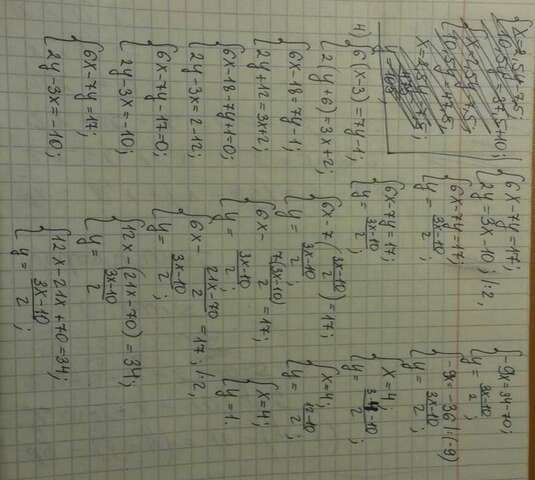 4) { 6(x-3)=7y-1;
{ 2(y+6)=3x+2;
{ 6x-18=7y-1;
{ 2y+12=3x+2;
{ 6x-18-7y+1=0;
{ 2y-3x=2-12;
{ 6x-7y-17=0;
{ 2y-3x=-10;
{ 6x-7y=17;
{ 2y-3x=-10;
{ 6x-7y=17;
{ 2y=3x-10; |:2,
{ 6x-7y=17;
{ y=\frac{3x-10}{2};
{ 6x-7y=17;
{ y=\frac{3x-10}{2};
{ 6x-7(\frac{3x-10}{2})=17;
{ y=\frac{3x-10}{2};
{ 6x-\frac{7(3x-10)}{2}=17;
{ y=\frac{3x-10}{2};
{ 6x-\frac{21x-70}{2}=17; |·2,
{ y=\frac{3x-10}{2};
{ 12x-(21x-70)=34;
{ y=\frac{3x-10}{2}
{ 12x-21x+70=34;
{ y=\frac{3x-10}{2};
{ -9x=34-70;
{ y=\frac{3x-10}{2};
{ -9x=-36 |:(-9)
{ y=\frac{3x-10}{2};
{ x=4;
{ y=\frac{3·4-10}{2};
{ x=4;
{ y=\frac{12-10}{2};
{ x=4;
{ y=1.